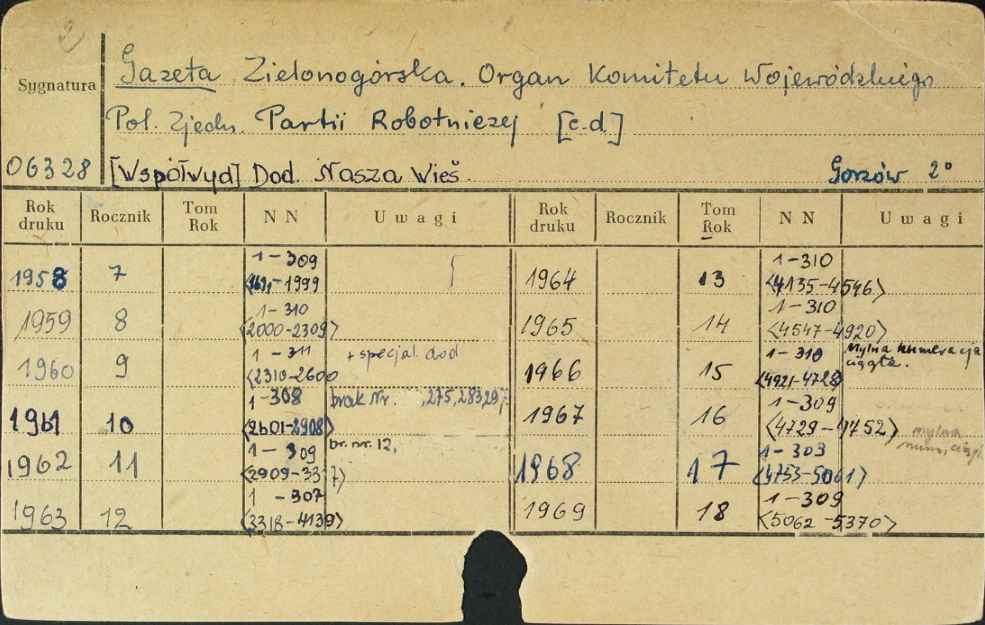 2
Sygnatura
Gazeta Zielonogórska. Organ Komitetu Wojewódzkiego
Pol. Zjedn. Partii Robotniczej [c.d.]
06328 [Współwyd] Dod. Nasza Wieś. Gorzów 2°
Rok druku Rocznik Tom Rok NN Uwagi Rok druku Rocznik Tom Rok NN Uwagi
1958 7 1-309
-1999>
1959 8 1-310
<2000-2309>
1960 9 1-311 + specjal. dod
<2310-2600
1961 10 1-308 brak Nr. 275, 283, 297
<2601-2908>
1962 11 1-309 br. nr. 12,
<2909-33 7>
1963 12 1-307
<3318-4139>
1964 13 1-310
<4135-4546>
1965 14 1-310
<4547-4920>
1966 15 1-310 Mylna numeracja
<4921-4728> ciągła.
1967 16 1-309
<4729-4752> mylna
num. ciągł.
1968 17 1-309
<4753-5061>
1969 18 1-309
<5062-5370>